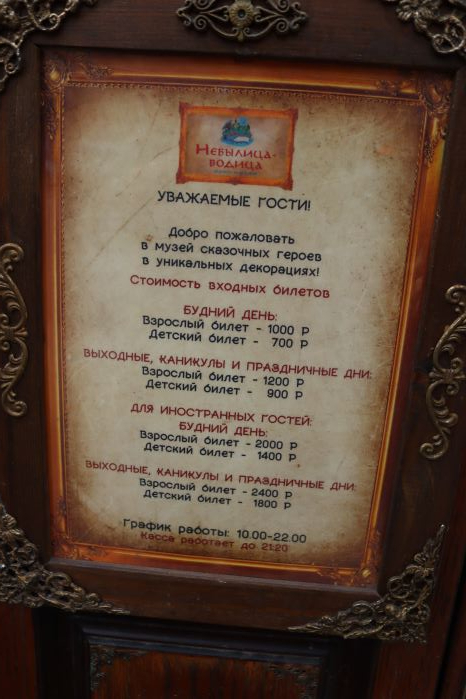 Небылица-
водица
УВАЖАЕМЫЕ ГОСТИ!
Добро пожаловать
в музей сказочных героев
в уникальных декорациях!
Стоимость входных билетов
БУДНИЙ ДЕНЬ:
Взрослый билет - 1000 Р
Детский билет - 700 Р
ВЫХОДНЫЕ, КАНИКУЛЫ И ПРАЗДНИЧНЫЕ ДНИ:
Взрослый билет - 1200 Р
Детский билет - 900 Р
ДЛЯ ИНОСТРАННЫХ ГОСТЕЙ:
БУДНИЙ ДЕНЬ:
Взрослый билет - 2000 Р
Детский билет - 1400 Р
ВЫХОДНЫЕ, КАНИКУЛЫ И ПРАЗДНИЧНЫЕ ДНИ:
Взрослый билет - 2400 Р
Детский билет - 1800 Р
График работы: 10.00-22.00
Касса работает до 21:20